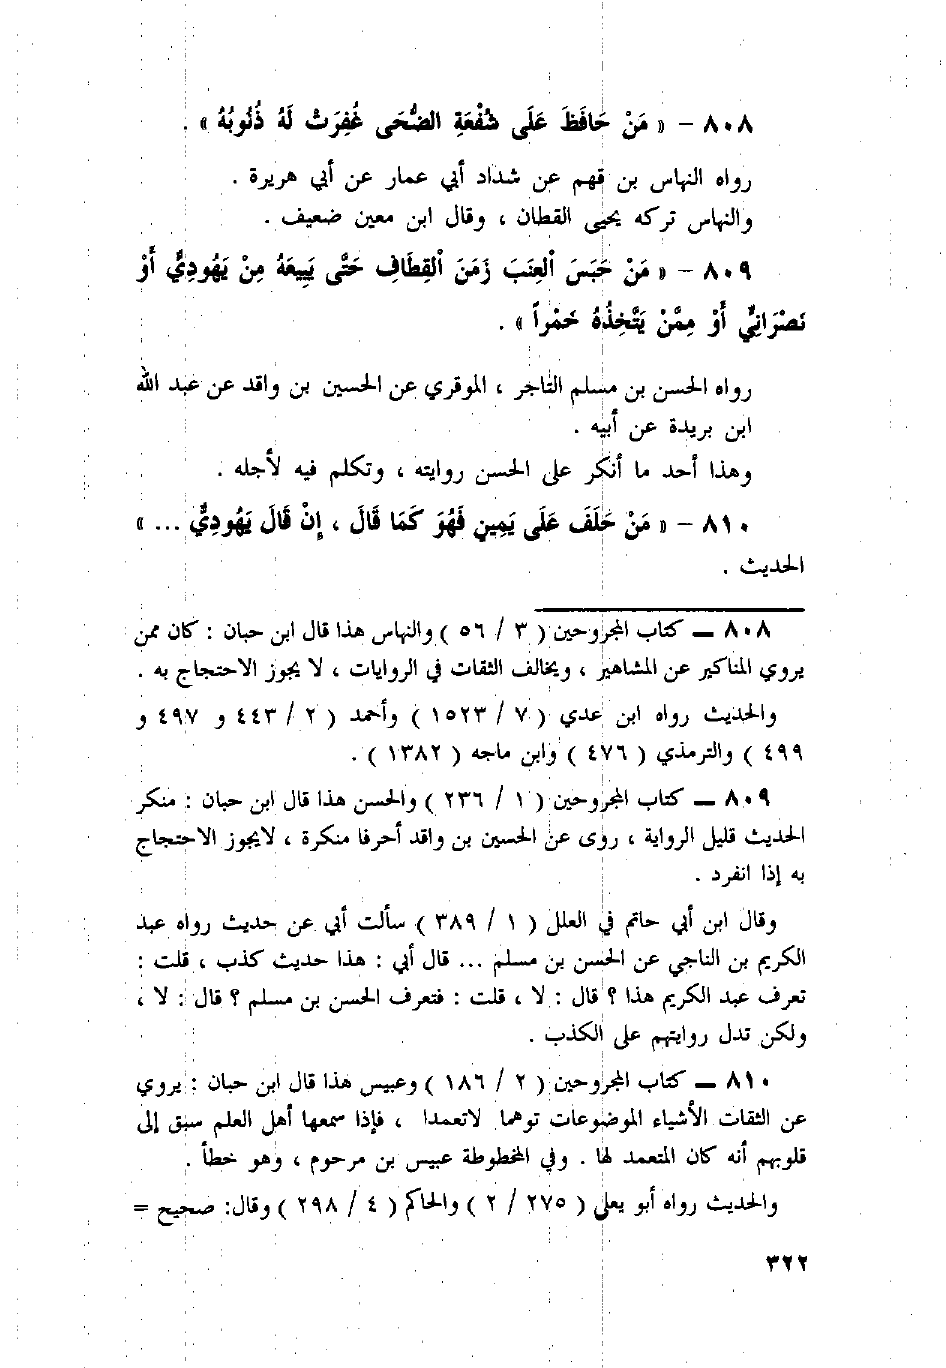 ٨٠٨ – « مَنْ حَافَظَ عَلَى شُفْعَةِ الضُّحَى غُفِرَتْ لَهُ ذُنُوبُهُ » .
رواه النهاس بن قهم عن شداد أبي عمار عن أبي هريرة .
والنهاس تركه يحيى القطان ، وقال ابن معين ضعيف .
٨٠٩ – « مَنْ حَبَسَ الْعِنَبَ زَمَنَ الْقِطَافِ حَتَّى يَبِيعَهُ مِنْ يَهُودِيٍّ أَوْ
نَصْرَانِيٍّ أَوْ مِمَّنْ يَتَّخِذُهُ خَمْراً » .
رواه الحسن بن مسلم التاجر ، الموقري عن الحسين بن واقد عن عبد الله
ابن بريدة عن أبيه .
وهذا أحد ما أنكر على الحسن روايته ، وتكلم فيه لأجله .
٨١٠ – « مَنْ حَلَفَ عَلَى يَمِينٍ فَهُوَ كَمَا قَالَ ، إِنْ قَالَ يَهُودِيٌّ ... »
الحديث .
٨٠٨ ــ كتاب المجروحين ( ٣ / ٥٦ ) والنهاس هذا قال ابن حبان : كان ممن
يروي المناكير عن المشاهير ، ويخالف الثقات في الروايات ، لا يجوز الاحتجاج به .
والحديث رواه ابن عدي ( ٧ / ١٥٢٣ ) وأحمد ( ٢ / ٤٤٣ و ٤٩٧ و
٤٩٩ ) والترمذي ( ٤٧٦ ) وابن ماجه ( ١٣٨٢ ) .
٨٠٩ ــ كتاب المجروحين ( ١ / ٢٣٦ ) والحسن هذا قال ابن حبان : منكر
الحديث قليل الرواية ، روى عن الحسين بن واقد أحرفا منكرة ، لايجوز الاحتجاج
به إذا انفرد .
وقال ابن أبي حاتم في العلل ( ١ / ٣٨٩ ) سألت أبي عن حديث رواه عبد
الكريم بن الناجي عن الحسن بن مسلم ... قال أبي : هذا حديث كذب ، قلت :
تعرف عبد الكريم هذا ؟ قال : لا ، قلت : فتعرف الحسن بن مسلم ؟ قال : لا ،
ولكن تدل روايتهم على الكذب .
٨١٠ ــ كتاب المجروحين ( ٢ / ١٨٦ ) وعبيس هذا قال ابن حبان : يروي
عن الثقات الأشياء الموضوعات توهما لاتعمدا ، فإذا سمعها أهل العلم سبق إلى
قلوبهم أنه كان المتعمد لها . وفي المخطوطة عبيس بن مرحوم ، وهو خطأ .
والحديث رواه أبو يعلى ( ٢٧٥ / ٢ ) والحاكم ( ٤ / ٢٩٨ ) وقال: صحيح =
٣٢٢